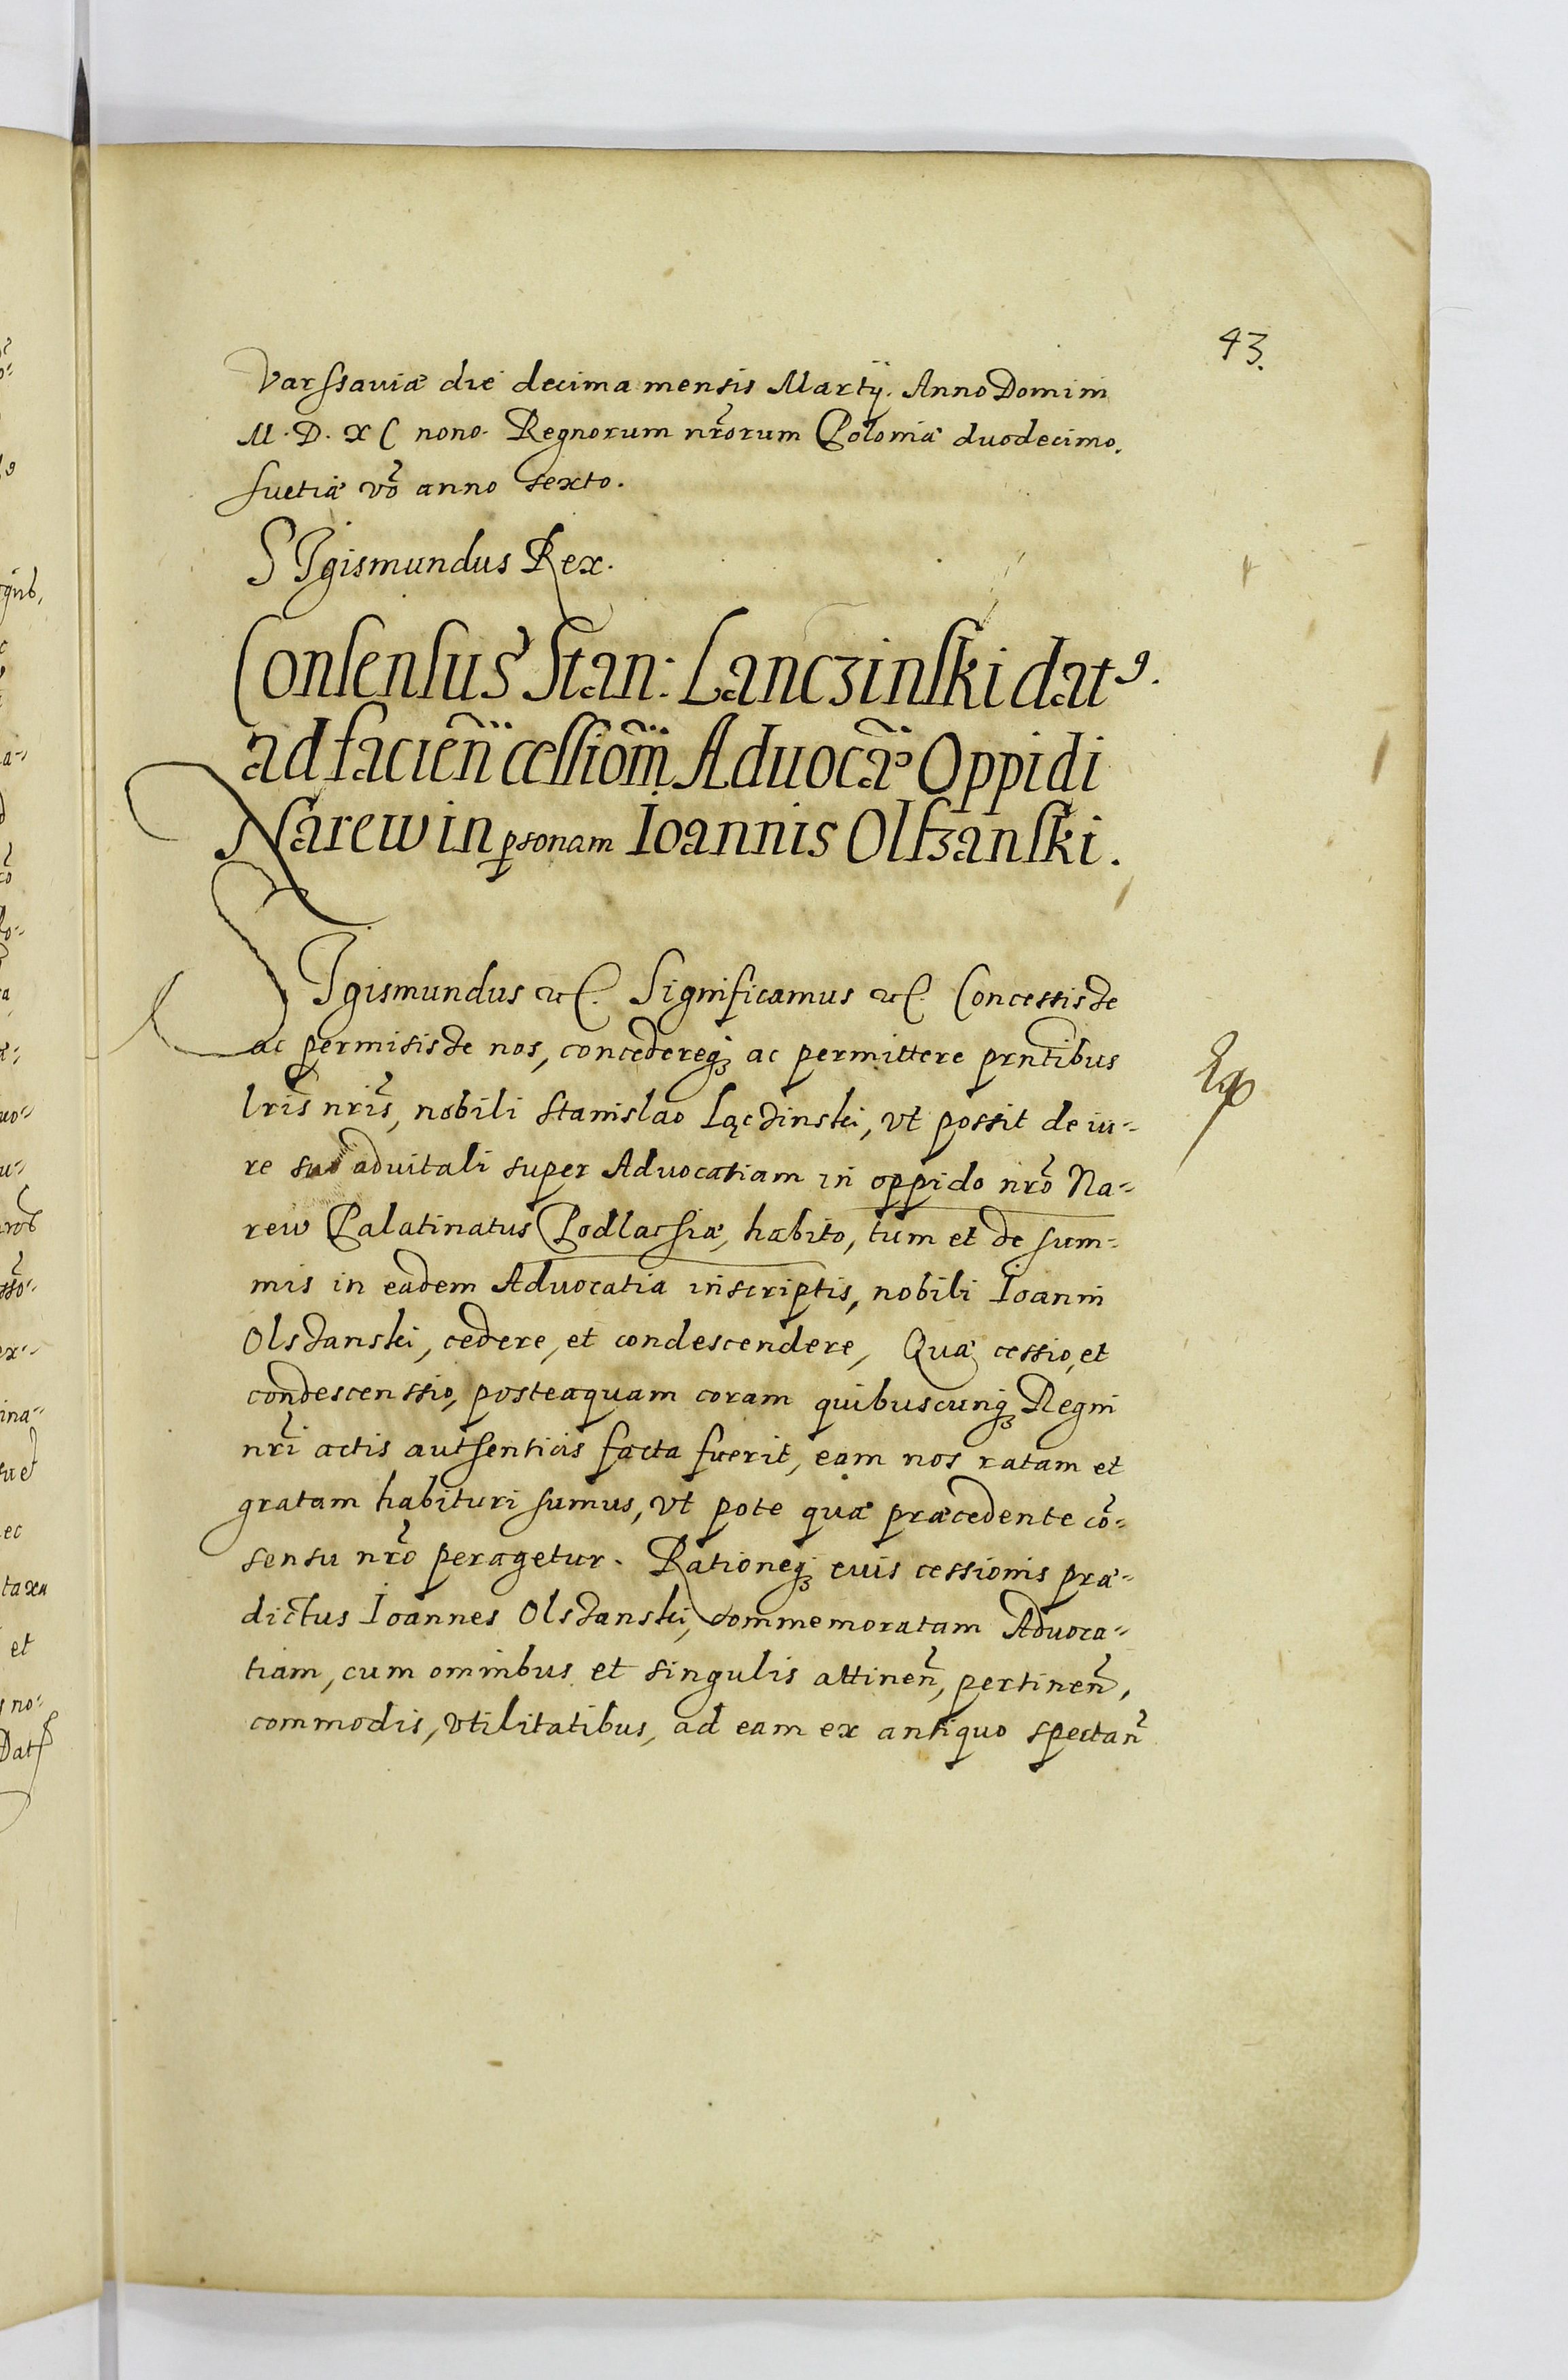 43.
Varssauiæ die decima mensis Martÿ. Anno Domini
M. D. XC nono. Regnorum nr̃orum Poloniæ duodecimo.
Suetiæ võ anno sexto.
SIgismundus Rex.
Consensus Stan: Lanczinski dat9.
ad facien̄ cessiom̄ Aduocãe Oppidi
Narew in psonam Ioannis Olszanski.
SIgismundus etc. Significamus etc. Concessisse
ac permisisse nos, concedereq; ac permittere prñtibus
lr̃is nr̃is, nobili Stanislao Lączinski, vt possit de iu-
re suo aduitali super Aduocatiam in oppido nr̃o Na-
rew Palatinatus Podlassiæ, habito, tum et de sum-
mis in eadem Aduocatia inscriptis, nobili Ioanni
Olszanski, cedere, et condescendere, Quæ cessio, et
condescenssio, posteaquam coram quibuscunq; Regni
nr̃i actis authenticis facta fuerit, eam nos ratam et
gratam habituri sumus, vt pote quæ præcedente cõ-
sensu nr̃o peragetur. Rationeq; euis cessionis præ-
dictus Ioannes Olszanski, commemoratam Aduoca-
tiam, cum omnibus et singulis attinen̄, pertinen̄,
commodis, vtilitatibus, ad eam ex antiquo spectan̄